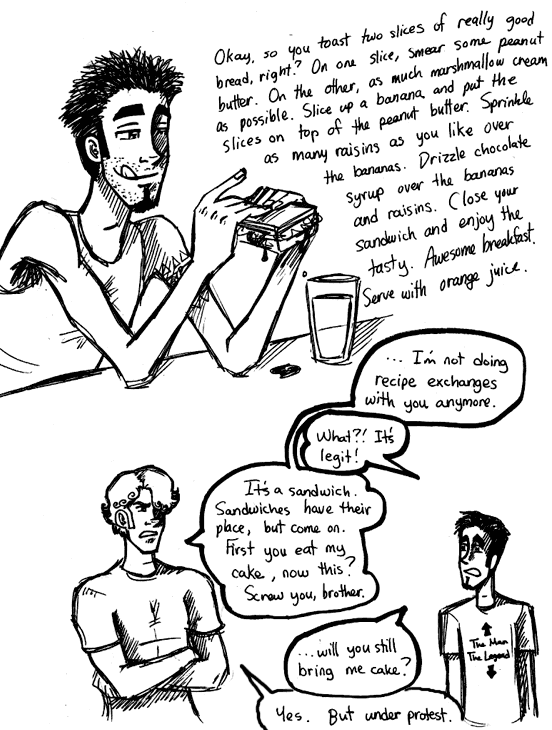 Okay, so you toast two slices of really good
bread, right? On one slice, smear some peanut
butter. On the other, as much marshmallow cream
as possible. Slice up a banana and put the
slices on top of the peanut butter. Sprinkle
as many raisins as you like over
the bananas. Drizzle chocolate
syrup over the bananas
and raisins. Close your
sandwich and enjoy the
tasty. Awesome breakfast.
Serve with orange juice.
... I'm not doing
recipe exchanges
with you anymore.
What?! It's
legit!
It's a sandwich.
Sandwiches have their
place, but come on.
First you eat my
cake, now this?
Screw you, brother.
The Man
The Legend
...will you still
bring me cake?
Yes. But under protest.